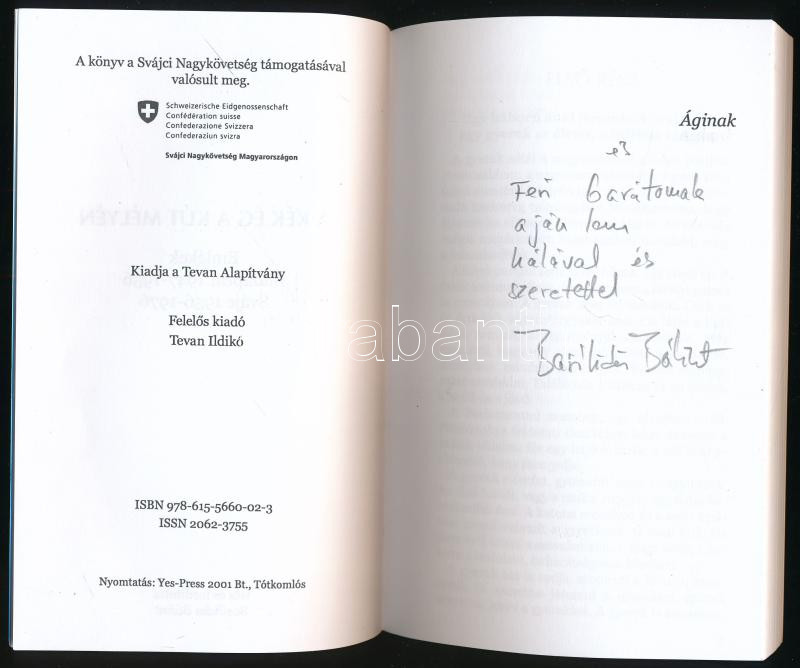 A könyv a Svájci Nagykövetség támogatásával
valósult meg.
Schweizerische Eidgenossenschaft
Confédération suisse
Confederazione Svizzera
Confederaziun svizra
Svájci Nagykövetség Magyarországon
Kiadja a Tevan Alapítvány
Felelős kiadó
Tevan Ildikó
ISBN 978-615-5660-02-3
ISSN 2062-3755
Nyomtatás: Yes-Press 2001 Bt., Tótkomlós
Áginak
és
Feri barátomnak
ajánlom
hálával és
szeretettel
Basilides Bálint
abanti